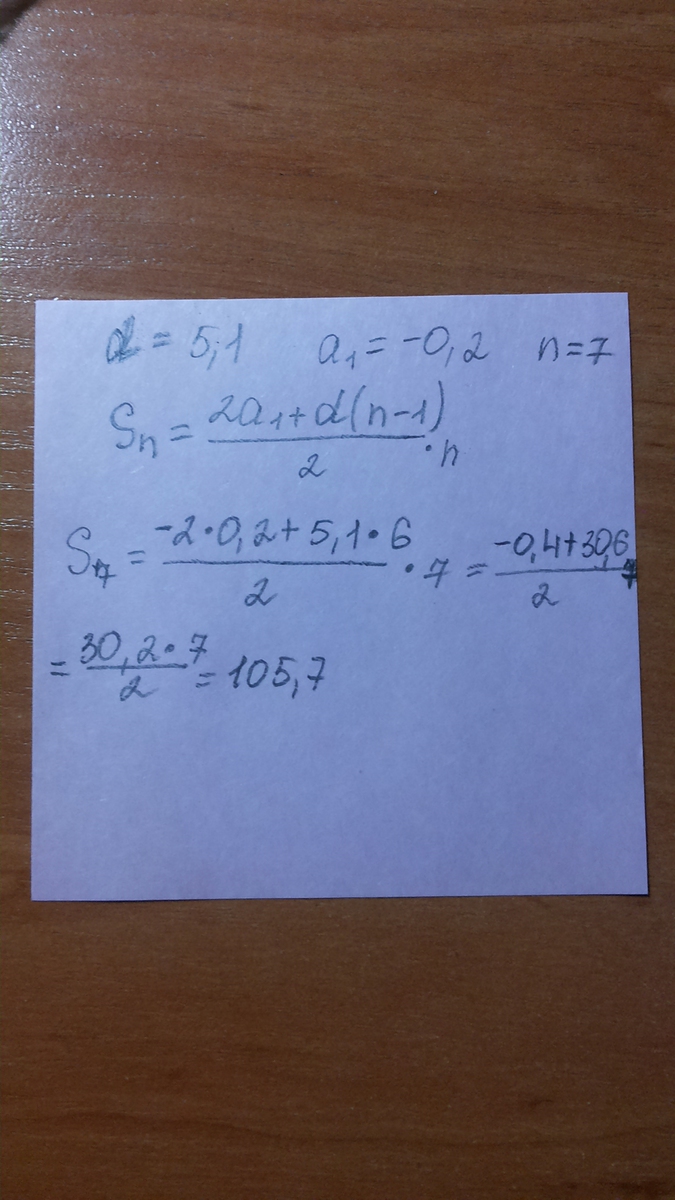 d = 5,1 a₁ = -0,2 n = 7
Sₙ = (2a₁ + d(n-1))/2 · n
S₇ = (-2·0,2 + 5,1·6)/2 · 7 = (-0,4 + 30,6)/2 · 7
= (30,2·7)/2 = 105,7